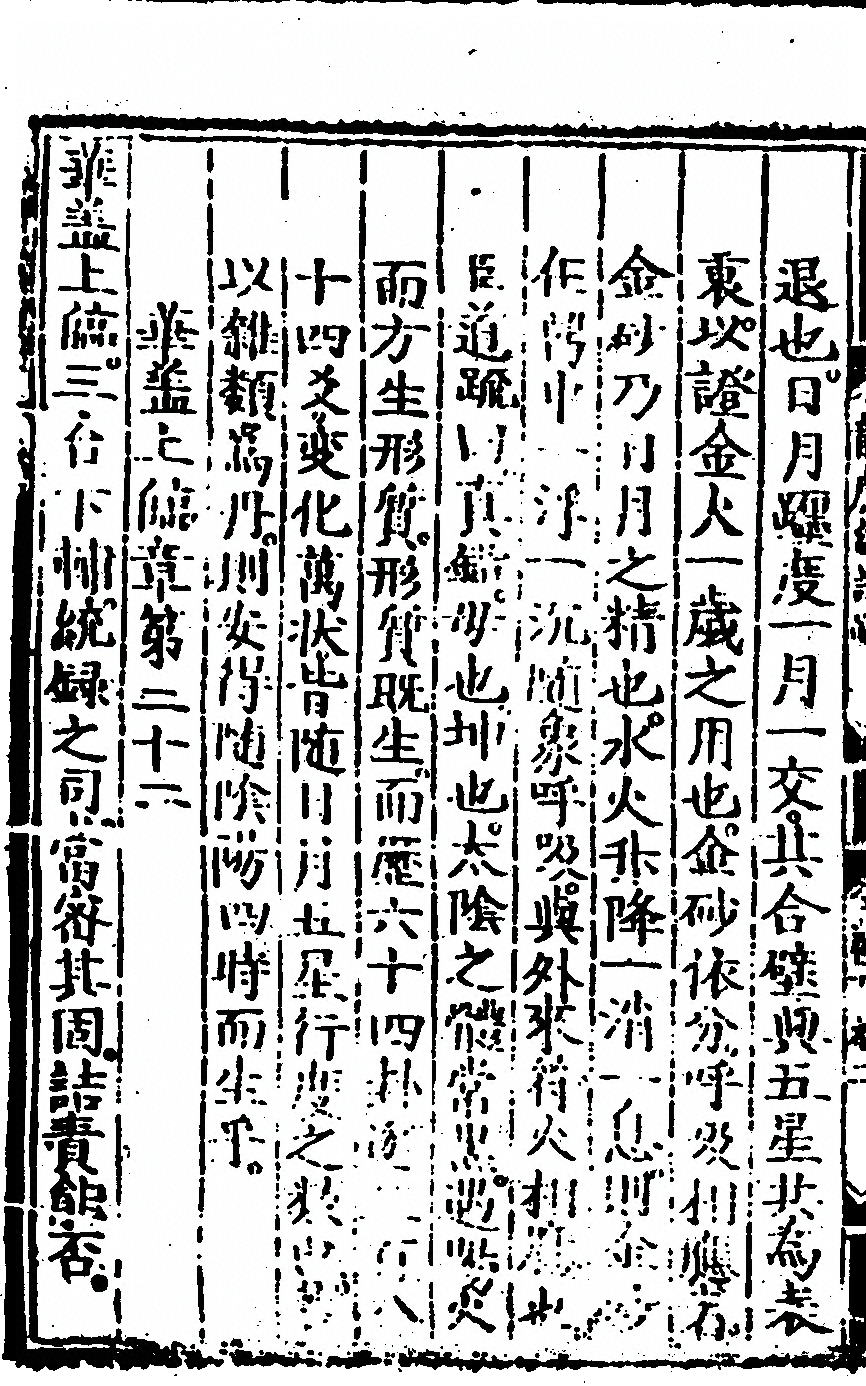 退也。日月躔度一月一交。共合壁與五星共為表
裏。以證金火一歲之用也。金砂依分呼吸相應。石
金砂乃日月之精也。水火升降一消一息則金砂
作鬧中一浮一沉隨象呼吸。與外來符火相應也
臣道疏曰真鉛。母也坤也。太陰之體常黑。遇照炎
而方生形質。形質既生。而歷六十四卦
十四爻變化萬狀皆隨日月五星行度之類
以雜類為丹。則安得隨陰陽四時而生乎。
華蓋上儲章第二十二
華蓋上儲。三台下肅統録之司。當審其固。詰責能否。